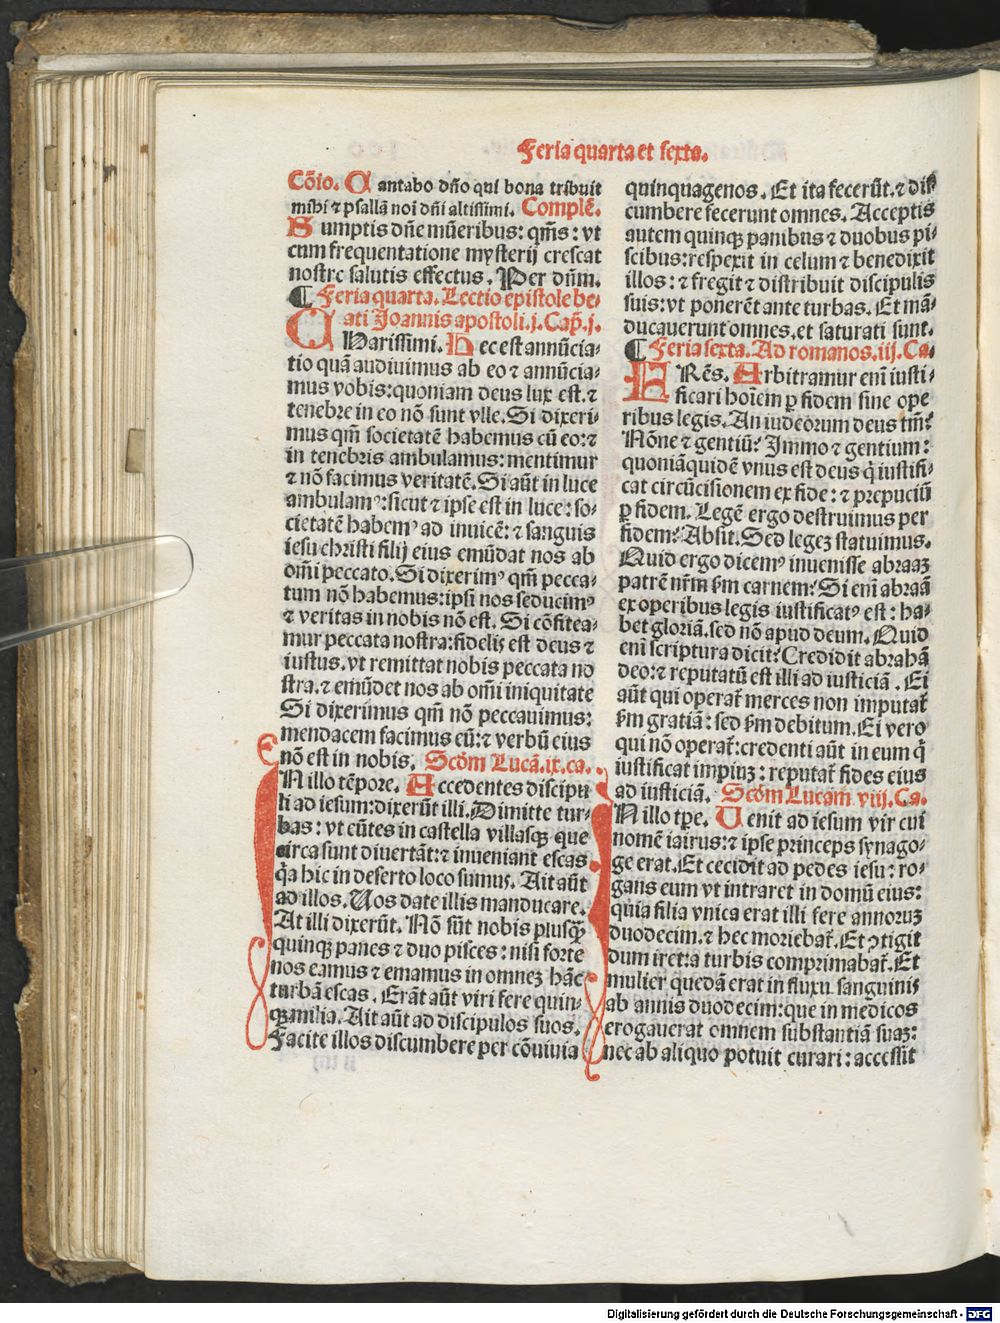 Feria quarta et sexta.
Cōio. Cantabo dn̄o qui bona tribuit
mihi ⁊ psallā noi dn̄i altissimi. Complē.
Sumptis dn̄e mūeribus: qm̄s: vt
cum frequentatione mysterij crescat
nostre salutis effectus. Per dn̄m.
¶ Feria quarta. Lectio epistole be⸗
ati Joannis apostoli. j. Cap̄. j.
CHarissimi. Hec est annūcia⸗
tio quā audiuimus ab eo ⁊ annūcia⸗
mus vobis: quoniam deus lux est. ⁊
tenebre in eo nō sunt vlle. Si dixeri⸗
mus qm̄ societatē habemus cū eo: ⁊
in tenebris ambulamus: mentimur
⁊ nō facimus veritatē. Si aūt in luce
ambulamꝰ: sicut ⁊ ipse est in luce: so⸗
cietatē habemꝰ ad inuicē: ⁊ sanguis
iesu christi filij eius emūdat nos ab
om̄i peccato. Si dixerimꝰ qm̄ pecca⸗
tum nō habemus: ipsi nos seducimꝰ
⁊ veritas in nobis nō est. Si cōfitea⸗
mur peccata nostra: fidelis est deus ⁊
iustus. vt remittat nobis peccata no
stra. ⁊ emūdet nos ab om̄i iniquitate
Si dixerimus qm̄ nō peccauimus:
mendacem facimus eū: ⁊ verbū eius
nō est in nobis. Scōm Lucā. ix. ca.
IN illo tēpore. Accedentes discipu
li ad iesum: dixerūt illi. Dimitte tur⸗
bas: vt eūtes in castella villasqꝫ que
circa sunt diuertāt: ⁊ inueniant escas
q̄a hic in deserto loco sumus. Ait aūt
ad illos. Uos date illis manducare.
At illi dixerūt. Nō sūt nobis plusq̄ꝫ
quinqꝫ panes ⁊ duo pisces: nisi forte
nos eamus ⁊ emamus in omneꝫ hāc
turbā escas. Erāt aūt viri fere quin⸗
qꝫ milia. Ait aūt ad discipulos suos.
Facite illos discumbere per cōuiuia
quinquagenos. Et ita fecerūt. ⁊ dis⸗
cumbere fecerunt omnes. Acceptis
autem quinqꝫ panibus ⁊ duobus pi⸗
scibus: respexit in celum ⁊ benedixit
illos: ⁊ fregit ⁊ distribuit discipulis
suis: vt ponerēt ante turbas. Et mā⸗
ducauerunt omnes. et saturati sunt.
¶ Feria sexta. Ad romanos. iij. Ca.
FRēs. Arbitramur eni̅ iusti⸗
ficari hoi̅em ꝑ fidem sine ope
ribus legis. An iudeorum deus tm̄?
Nōne ⁊ gentiū? Immo ⁊ gentium:
quoniāquidē vnus est deus q̇ iustifi⸗
cat circūcisionem ex fide: ⁊ prepuciū
ꝑ fidem. Legē ergo destruimus per
fidem? Absit. Sed legeꝫ statuimus.
Quid ergo dicemꝰ inuenisse abraaꝫ
patrē nr̄m ẜm carnem? Si eni̅ abraā
ex operibus legis iustificatꝰ est: ha⸗
bet gloriā. sed nō apud deum. Quid
eni̅ scriptura dicit? Credidit abrahā
deo: ⁊ reputatū est illi ad iusticiā. Ei
aūt qui operat̄ merces non imputat̄
ẜm gratiā: sed ẜm debitum. Ei vero
qui nō operat̄: credenti aūt in eum q̇
iustificat impiuꝫ: reputat̄ fides eius
ad iusticiā. Scōm Lucam viij. Ca.
IN illo tꝑe. Uenit ad iesum vir cui
nomē iairus: ⁊ ipse princeps synago⸗
ge erat. Et cecidit ad pedes iesu: ro⸗
gans eum vt intraret in domū eius:
quia filia vnica erat illi fere annoruꝫ
duodecim. ⁊ hec moriebat̄. Et ↄtigit
dum iret: a turbis comprimabat̄. Et
mulier quedā erat in fluxu sanguinis
ab annis duodecim: que in medicos
erogauerat omnem substantiā suaꝫ:
nec ab aliquo potuit curari: accessit
Digitalisierung gefördert durch die Deutsche Forschungsgemeinschaft - DFG